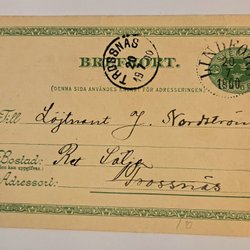 BREFKORT.
(DENNA SIDA ANVÄNDES ENDAST FÖR ADRESSERINGEN.)
TROSSNÄS
20
LINDFO
20
1900
Till Löjtnant J. Nordström
Bostad:
(När den kan uppgifvas.)
Adressort:
Trossnäs